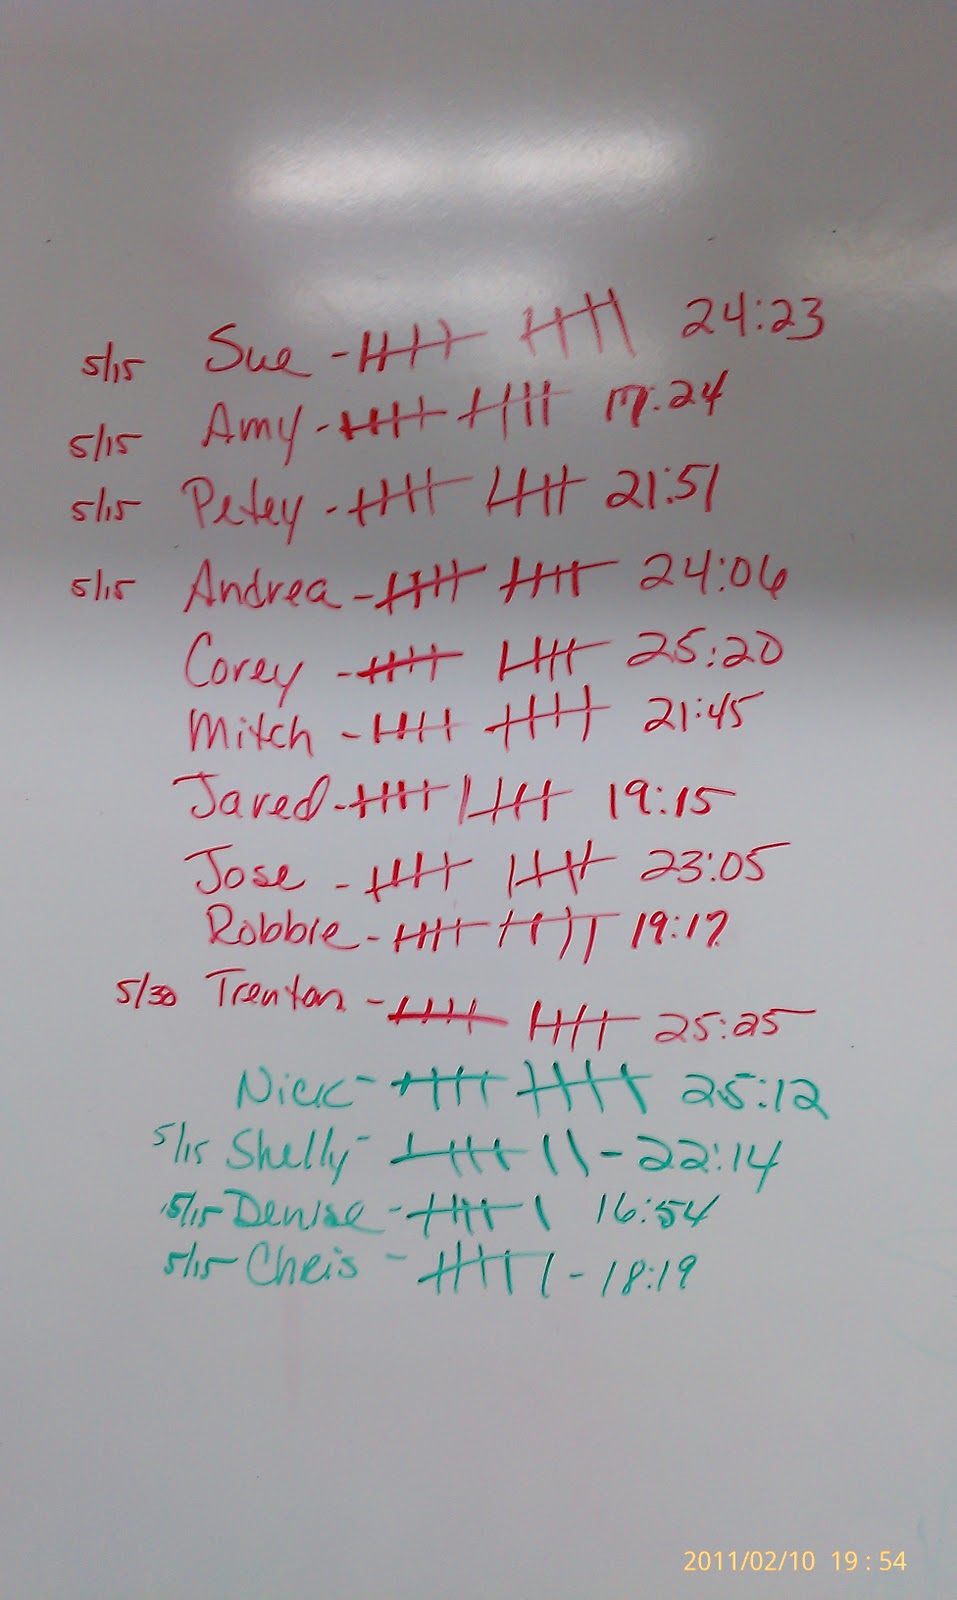 5/15 Sue - 𝍸 𝍸 24:23
5/15 Amy - 𝍸 𝍸 17:24
5/15 Petey - 𝍸 𝍸 21:51
5/15 Andrea - 𝍸 𝍸 24:06
Corey - 𝍸 𝍸 25:20
Mitch - 𝍸 𝍸 21:45
Jared - 𝍸 𝍸 19:15
Jose - 𝍸 𝍸 23:05
Robbie - 𝍸 𝍸 19:17
5/30 Trenton - 𝍸 𝍸 25:25
Nick - 𝍸 𝍸 25:12
5/15 Shelly - 𝍸 || - 22:14
5/15 Denise - 𝍸 | 16:54
5/15 Chris - 𝍸 | - 18:19
2011/02/10 19:54